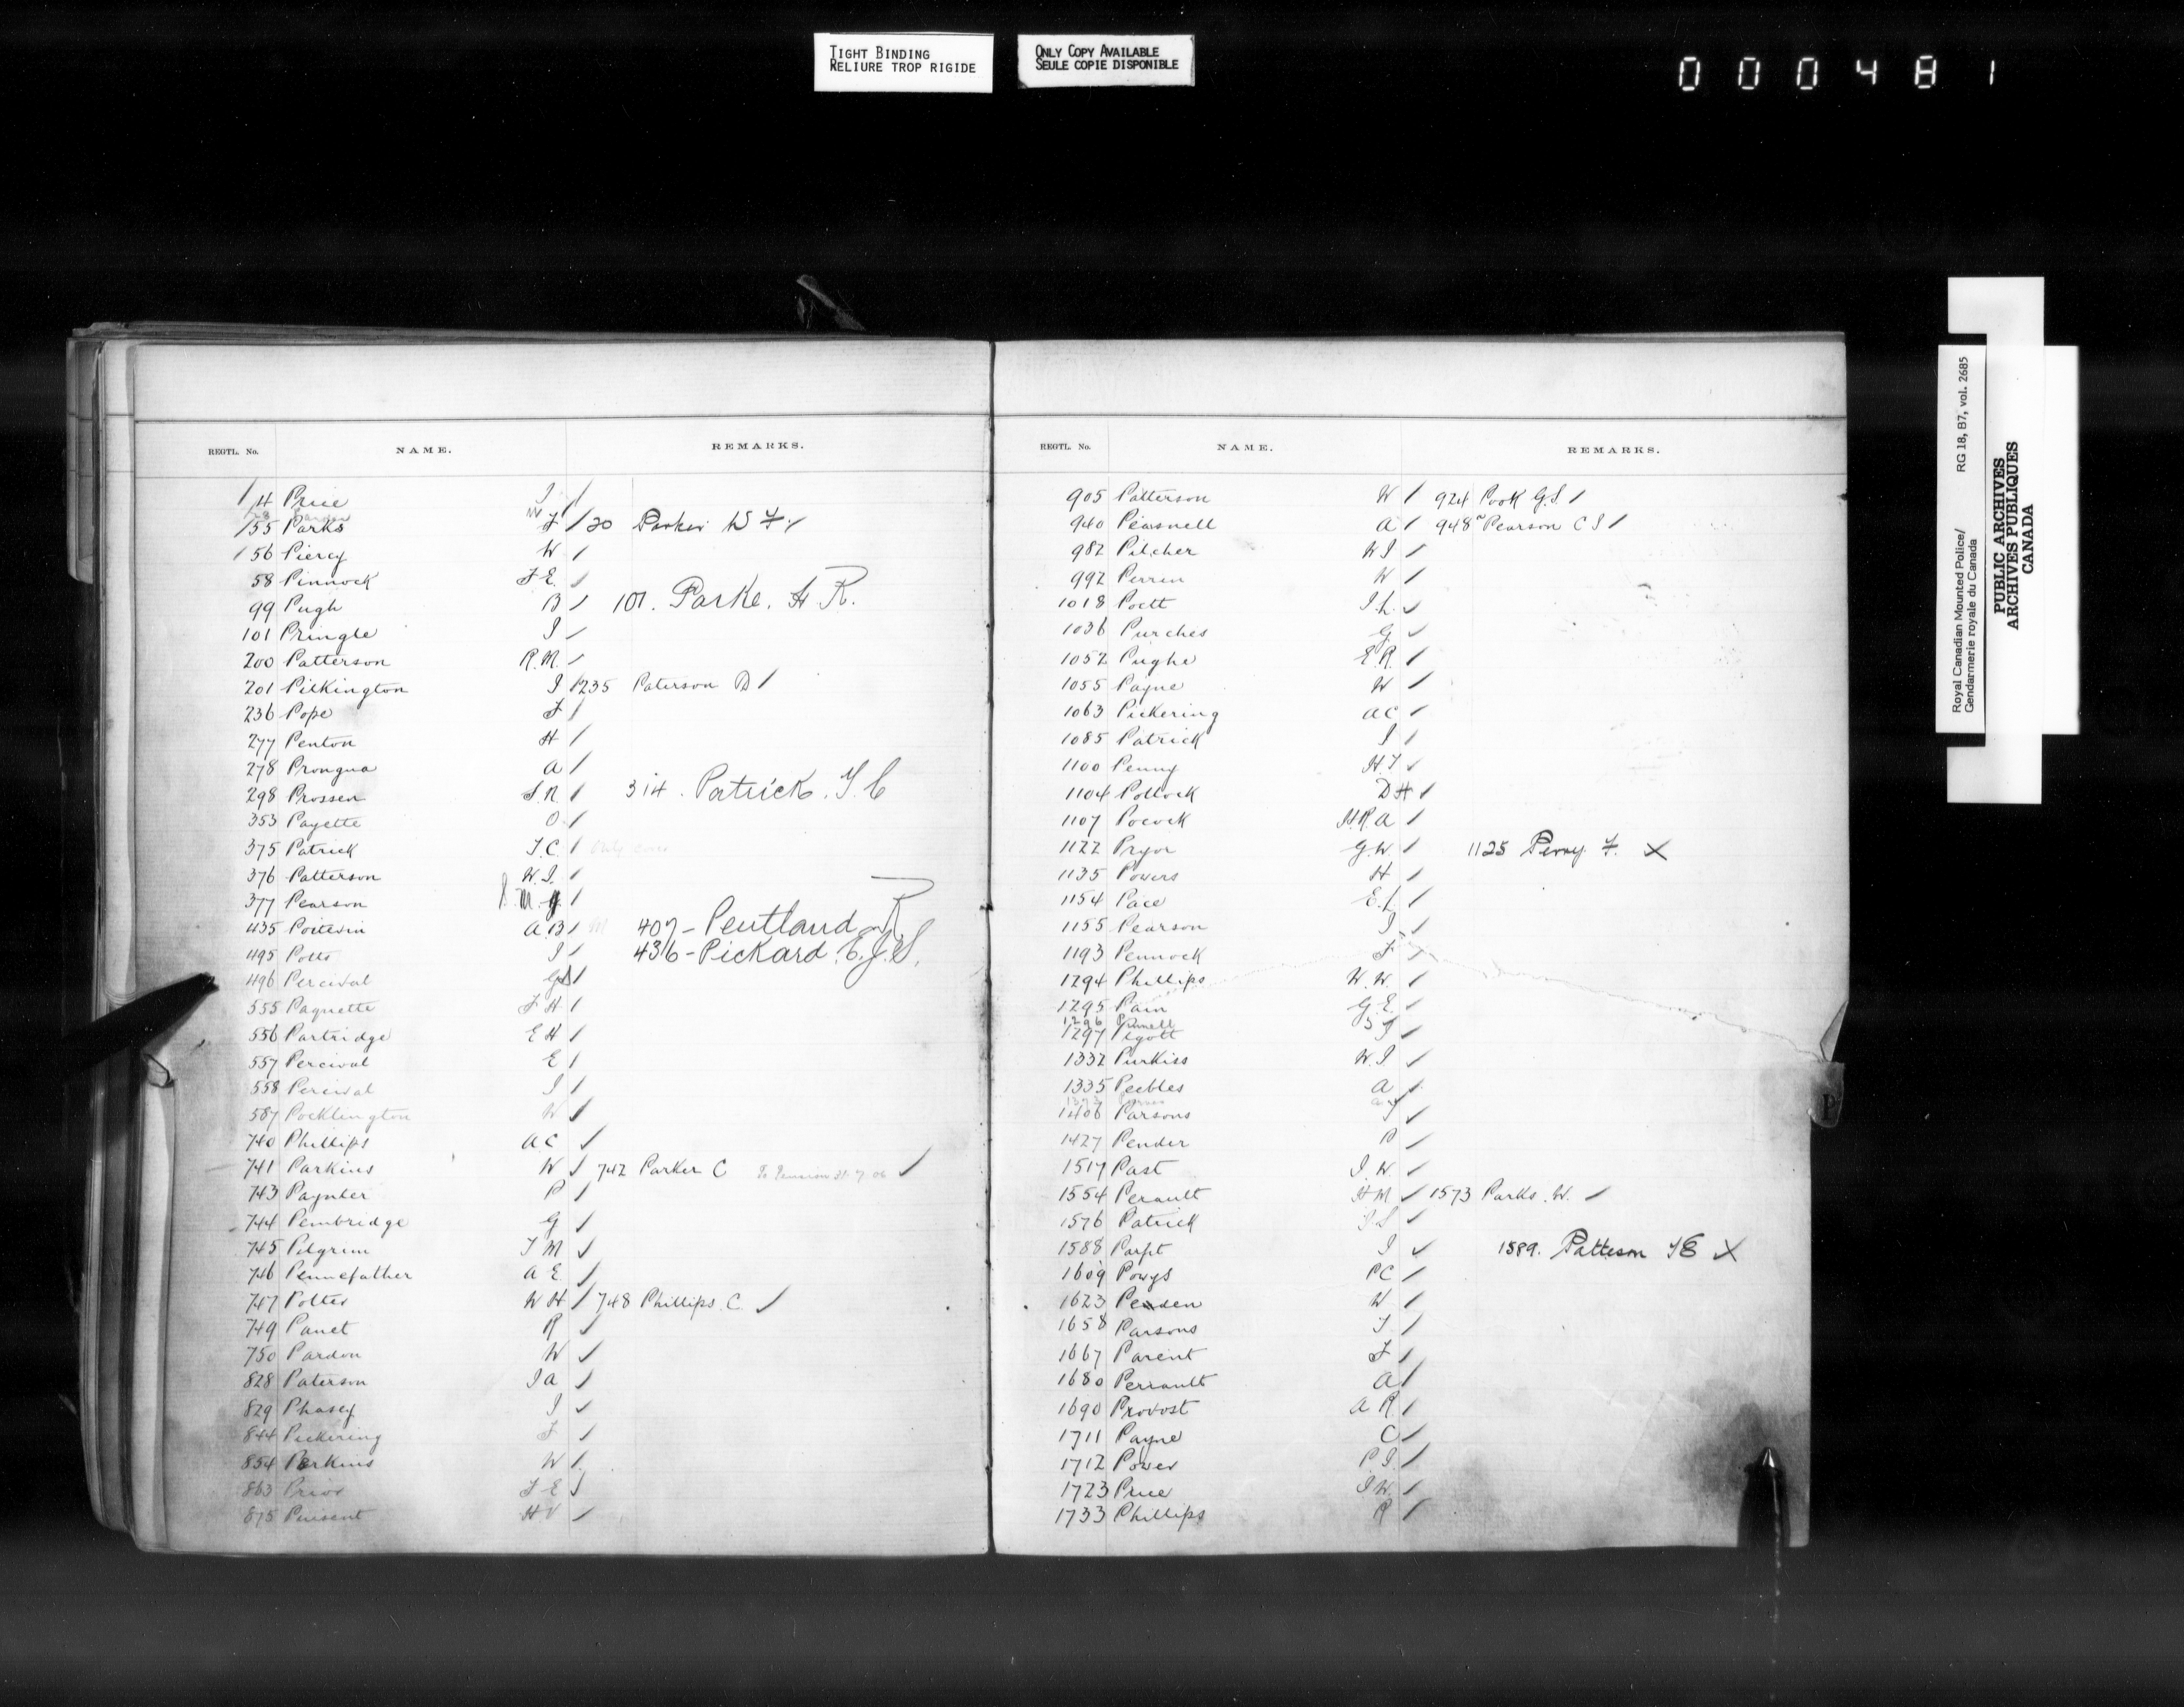 TIGHT BINDING
RELIURE TROP RIGIDE
ONLY COPY AVAILABLE
SEULE COPIE DISPONIBLE
000481
REGTL. No. NAME. REMARKS.
14 Price J /
155 Parks F / 20 Parker W F /
156 Piercy W /
58 Pinnock F E. /
99 Pugh B / 101. Parke. H R.
101 Pringle J /
200 Patterson R. M. /
201 Pilkington J / 235 Paterson D /
236 Pope F /
277 Penton H /
278 Prongua A /
298 Prossen S. R / 314. Patrick. T. C
353 Payette O /
375 Patrick T. C. /
376 Patterson W. J. /
377 Pearson S. M. /
435 Poitevin A. B / 407 - Pentland R
495 Potts J / 436 - Pickard. E. J. S.
496 Percival /
555 Paquette F H /
556 Partridge E H /
557 Percival E /
558 Percival J /
587 Pocklington W /
740 Phillips A C /
741 Parkins W / 742 Parker C To Pension 31.7.06 /
743 Paynter P /
744 Pembridge G /
745 Pilgrim T M /
746 Pennefather A E. /
747 Potter W H / 748 Phillips. C. /
749 Panet R /
750 Pardon W /
828 Paterson J A /
829 Phasey J /
844 Pickering F /
854 Perkins W /
863 Prior F E /
875 Pensent H V /
REGTL. No. NAME. REMARKS.
905 Patterson W / 924 Pook G. S /
940 Peasnell A / 948 Pearson C S /
982 Pilcher W J /
992 Perrin W /
1018 Poett J. L. /
1036 Purches G. /
1052 Pughe E. R. /
1055 Payne W /
1063 Pickering A C /
1085 Patrick J /
1100 Penny H. T /
1104 Pollock D H /
1107 Pocock H. R. A /
1122 Pryor G. W. / 1125 Perry F. X
1135 Powers H /
1154 Pace E. L /
1155 Pearson J /
1193 Pennock F /
1294 Phillips W. W. /
1295 Pain G. E. /
1296 Pennell S
1297 Pigott J /
1332 Purkiss W. J /
1335 Peebles A /
1406 Parsons J /
1427 Pender P /
1517 Past J. W. /
1554 Perault H M / 1573 Parks. W. /
1576 Patrick J S /
1588 Parfit J / 1589. Patteson T E X
1609 Powys P C /
1623 Penden W /
1658 Parsons T. /
1667 Parent F /
1680 Perrault A /
1690 Provost A R. /
1711 Payne C /
1712 Power P J. /
1723 Price J W. /
1733 Phillips R /
P
Royal Canadian Mounted Police/
Gendarmerie royale du Canada
RG 18, B7, vol. 2685
PUBLIC ARCHIVES
ARCHIVES PUBLIQUES
CANADA